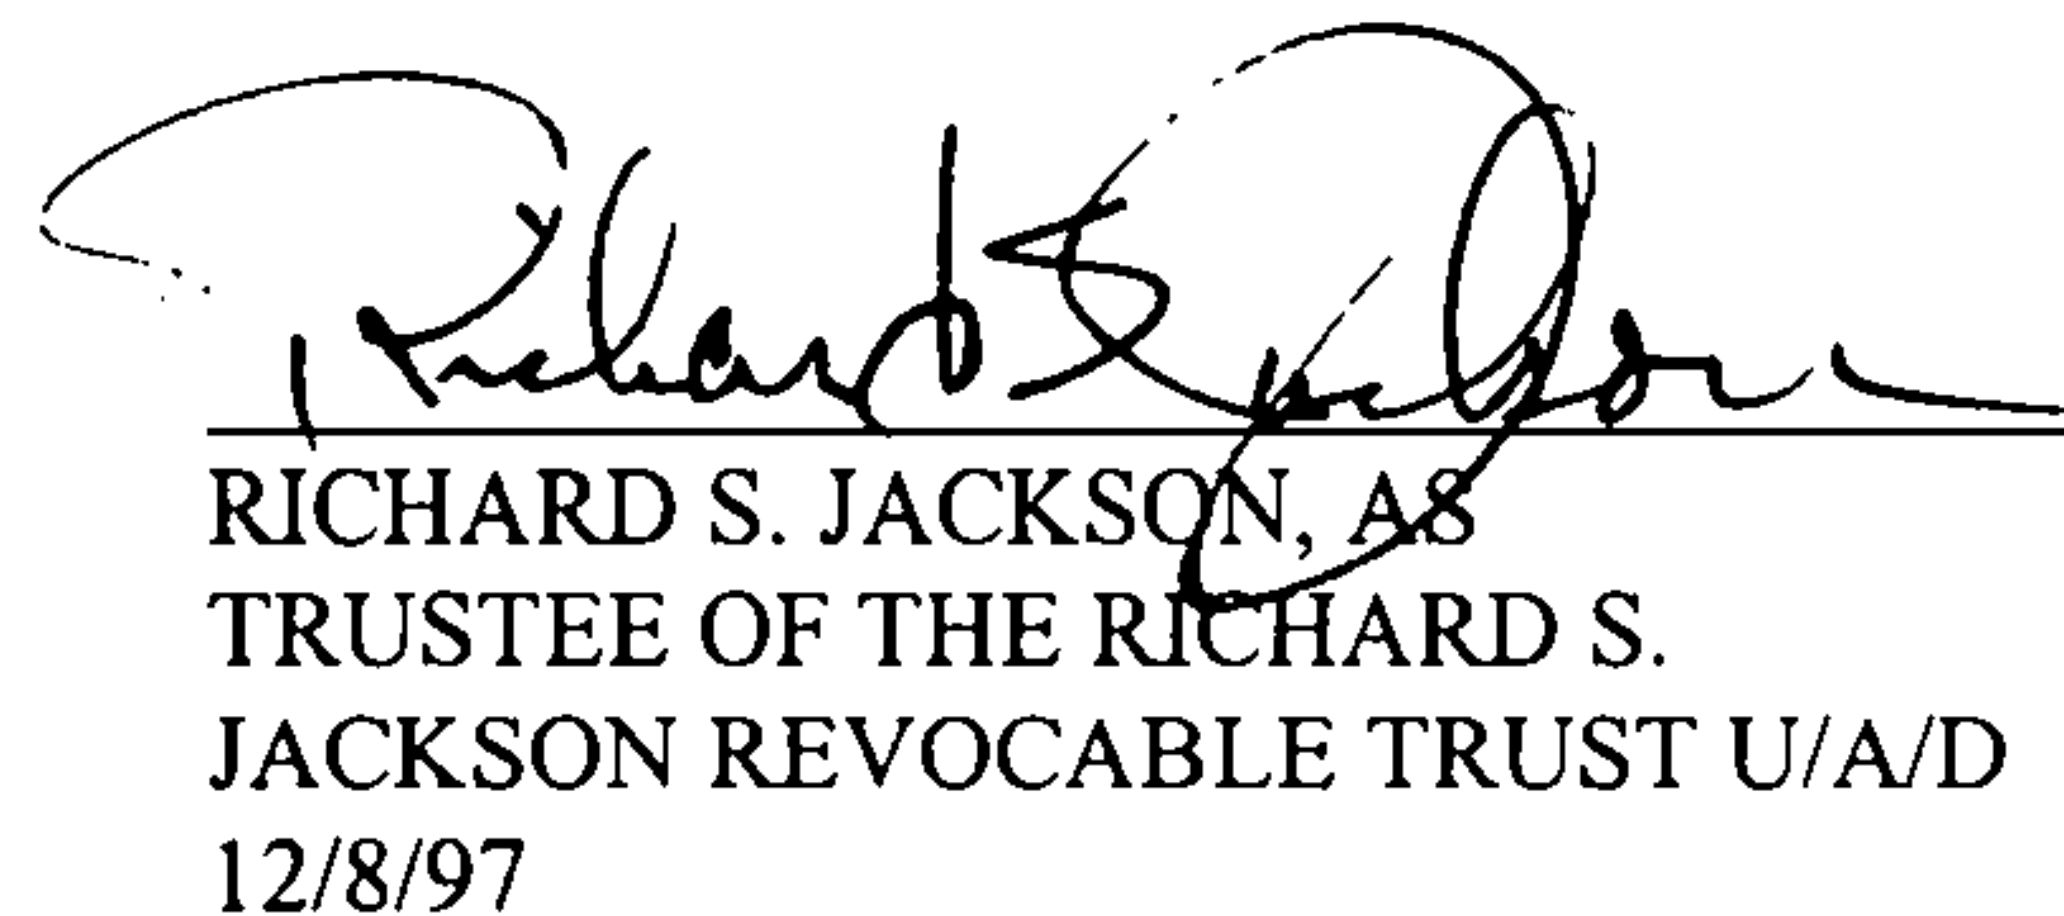 Richard S Jackson
RICHARD S. JACKSON, AS
TRUSTEE OF THE RICHARD S.
JACKSON REVOCABLE TRUST U/A/D
12/8/97